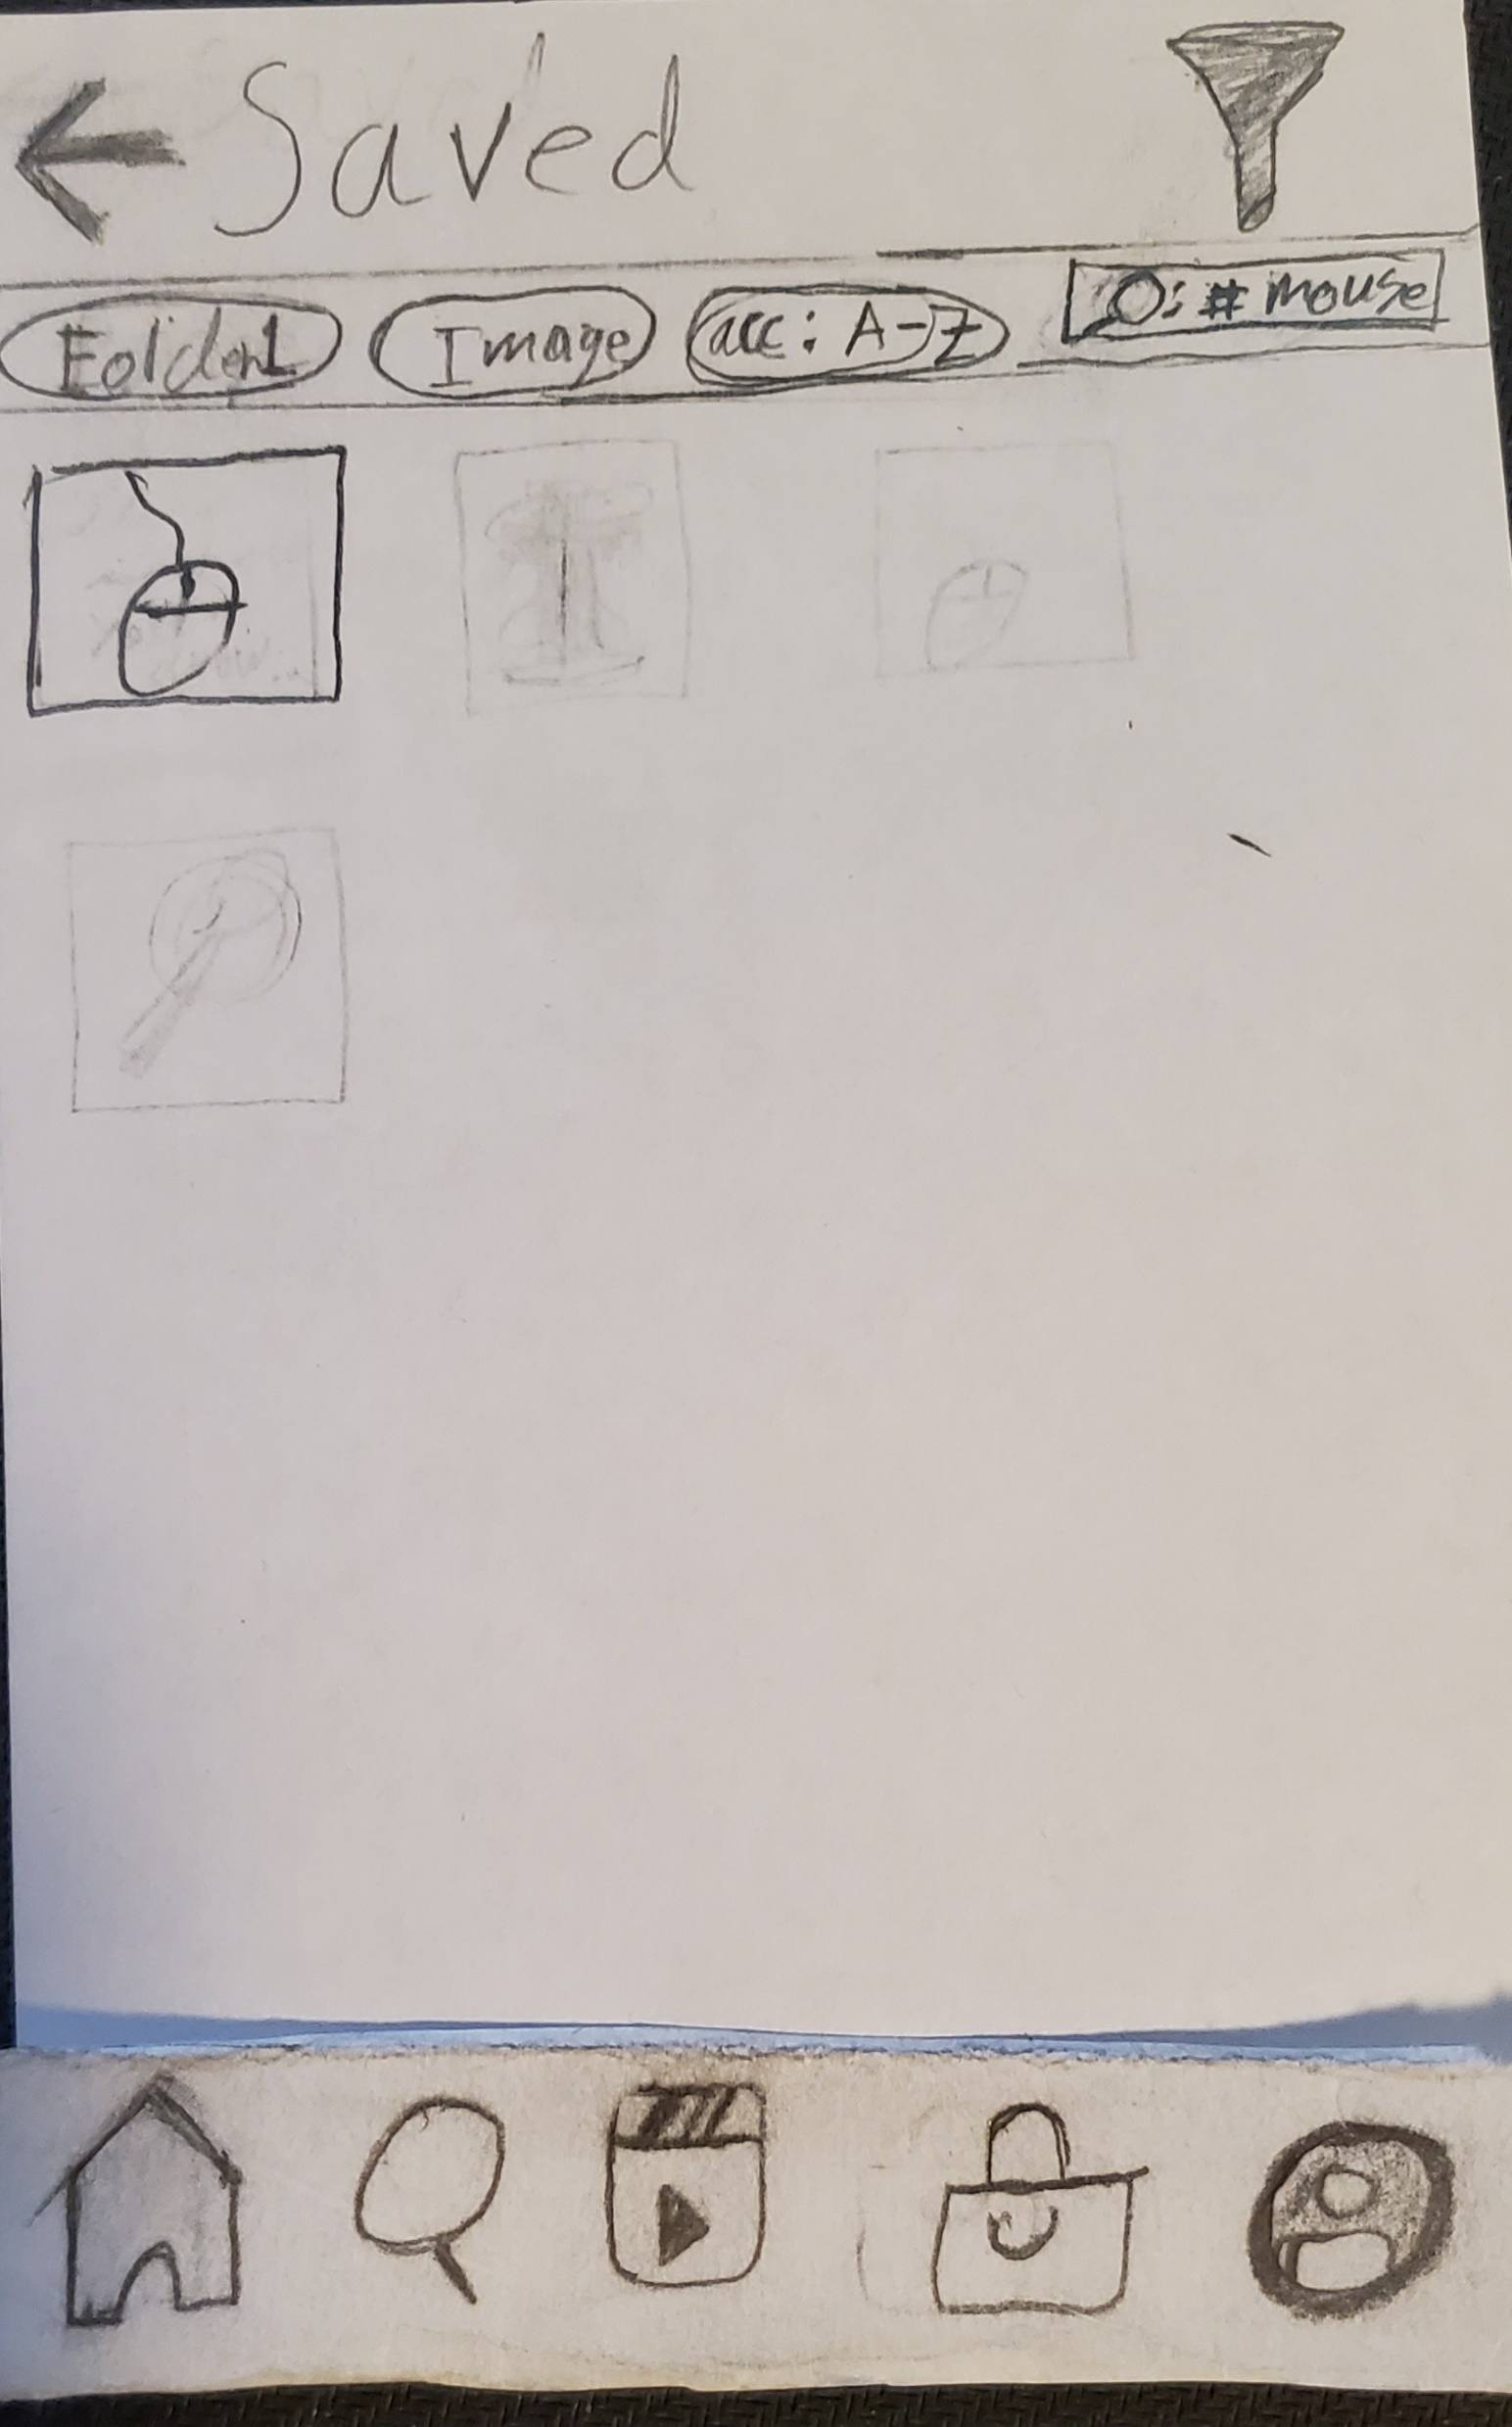 Saved
Folder1 Image acc: A-Z : # mouse